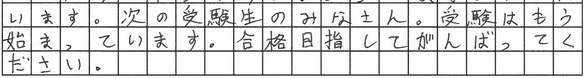 います。次の受験生のみなさん。受験はもう
始まっています。合格目指してがんばってく
ださい。